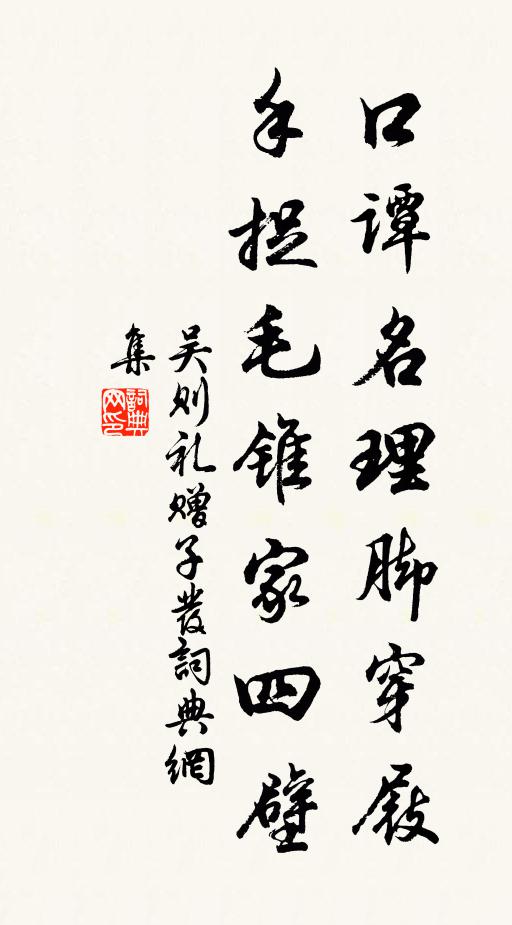 口谭名理脚穿屐
手捉毛锥家四壁
吴则礼赠子发詞典網
集
詞典网印